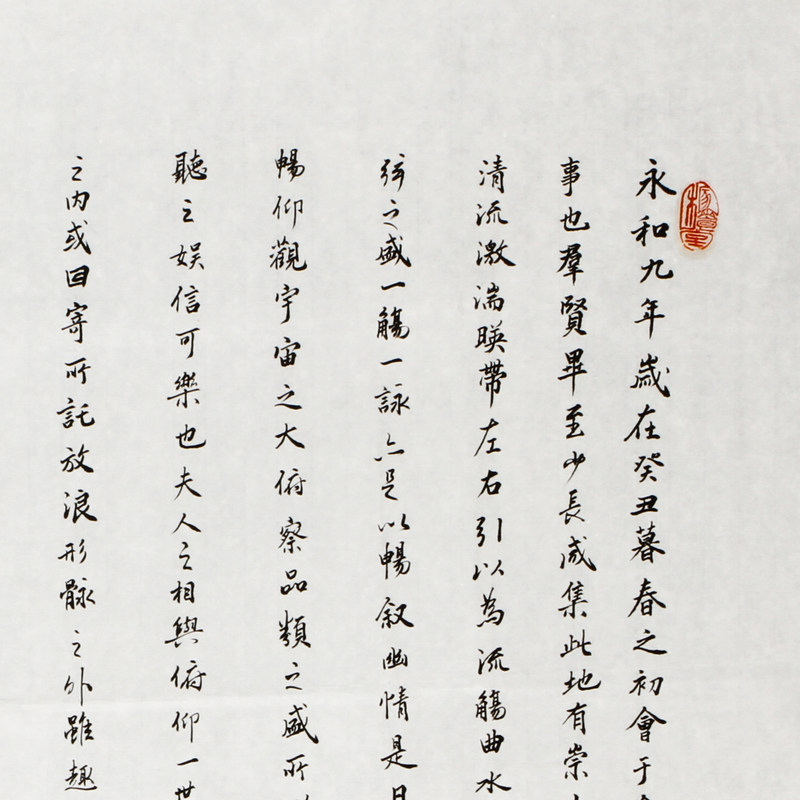 永和九年歲在癸丑暮春之初會于
事也羣賢畢至少長咸集此地有崇
清流激湍暎帶左右引以為流觴曲水
弦之盛一觴一詠亦足以暢叙幽情是日
暢仰觀宇宙之大俯察品類之盛所
聽之娛信可樂也夫人之相與俯仰一世
之內或因寄所託放浪形骸之外雖趣